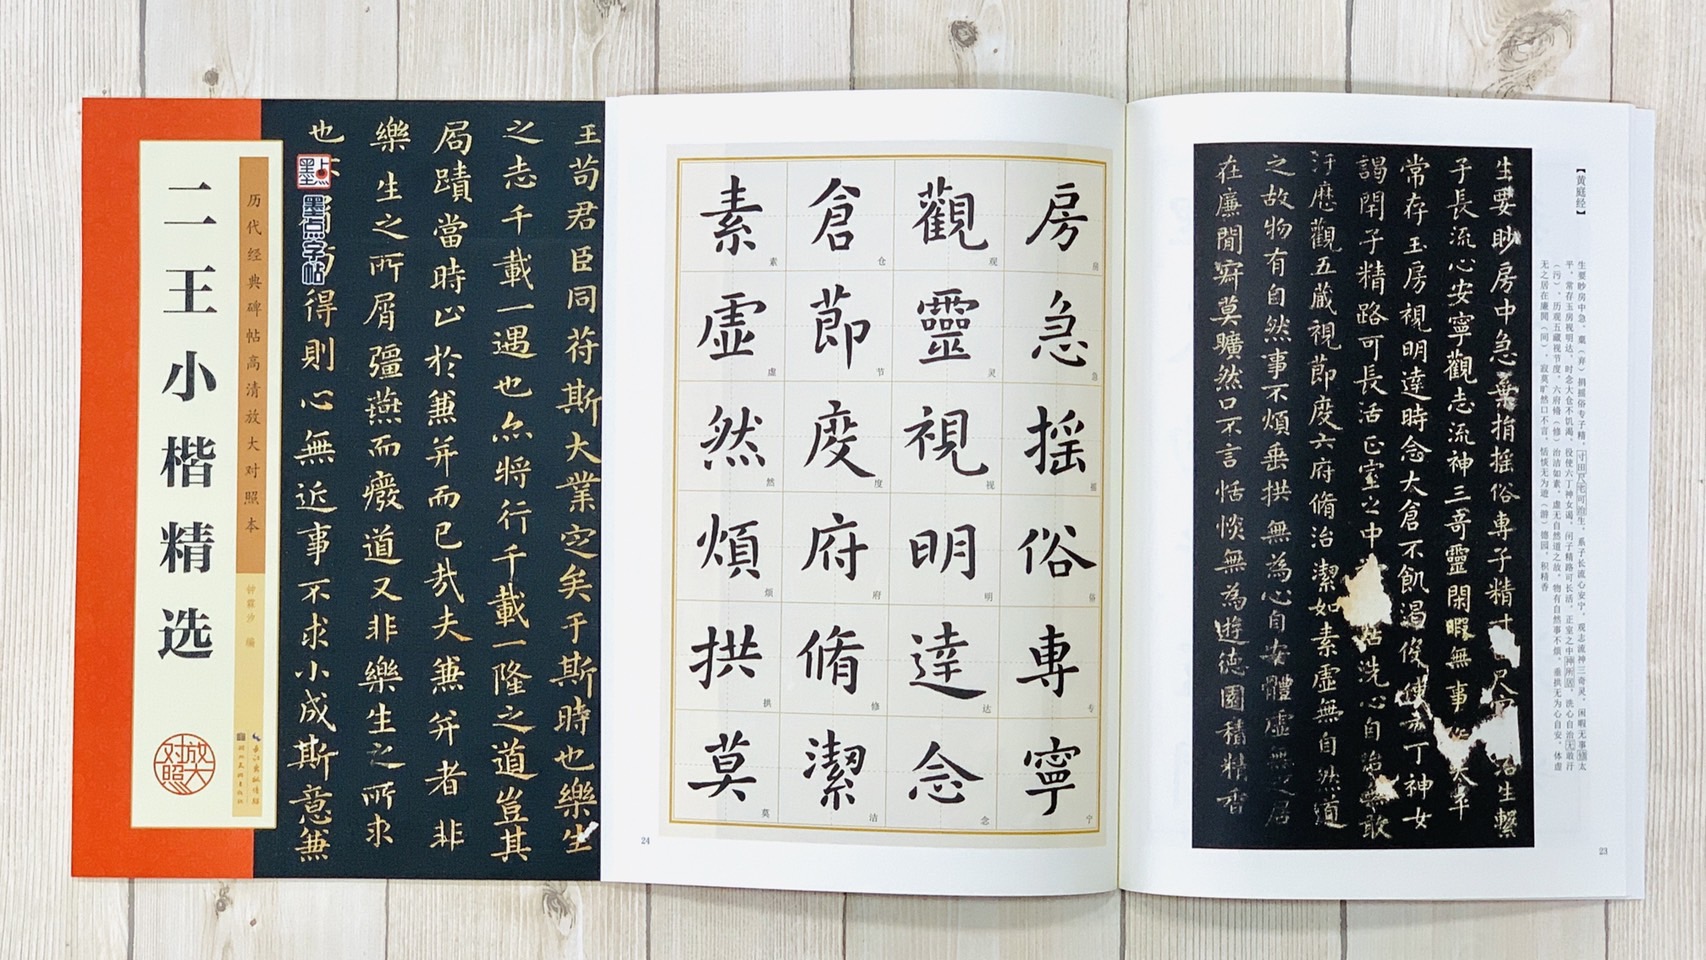 二王小楷精选
历代经典碑帖高清放大对照本
钟霖汐 编
放大对照
墨点
墨点字帖
王苟君臣同苻斯大業定矣于斯時也樂生
之志千載一遇也亦將行千載一隆之道豈其
局蹟當時止於兼并而已哉夫兼并者非
樂生之所屑彊燕而癈道又非樂生之所求
得則心無近事不求小成斯意兼
房急摇俗専寧
觀靈視明達念
倉節度府脩潔
素虛然煩拱莫
房急摇俗专宁
观灵视明达念
仓节度府修洁
素虚然烦拱莫
24
【黄庭经】
生要眇房中急棄捐摇俗専子精
子長流心安寧觀志流神三奇靈閑暇無事
常存玉房視明達時念大倉不飢渴役使六丁神女
謁閇子精路可長活正室之中
洗心自治無敢
汙歷觀五藏視節度六府脩治潔如素虛無自然道
之故物有自然事不煩垂拱無為心自安體虛無之居
在廉閒寂莫曠然口不言恬惔無為遊徳園積精香
23